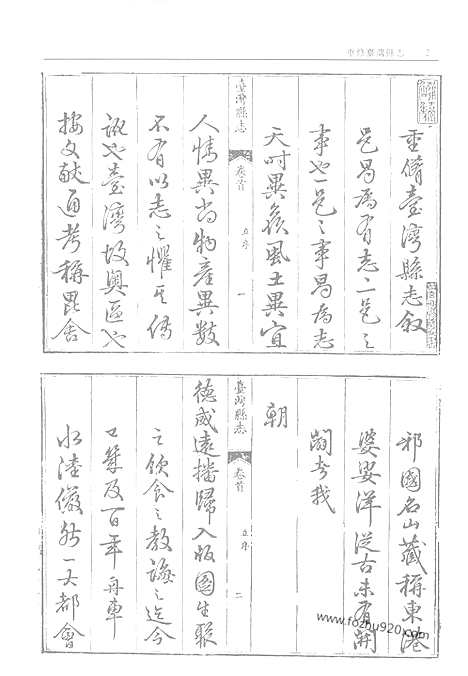 重修臺灣縣志
重脩臺灣縣志叙
邑曷為有志〻一邑之
事也一邑之事曷為志
天時異候風土異宜
臺灣縣志 卷首 五序 一
人情異尚物產異數
不有以志之懼其傳
訛也臺灣故奧區也
按文獻通考稱毘舍
邪國名山藏稱東港
婆娑洋從古未有開
闢者我
朝
臺灣縣志 卷首 五序 二
德威遠播歸入版圖生聚
之飲食之教誨之迄今
已幾及百年舟車
水陸儼然一大都會
www.fozhu920.com